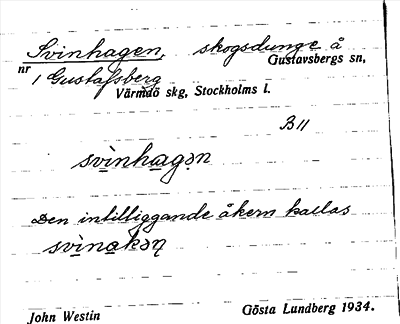 Svinhagen, skogsdunge å
nr 1 Gustafsberg Gustavsbergs sn,
Värmdö skg, Stockholms l.
B 11
svinhagən
Den intilliggande åkern kallas
svinakəɳ
John Westin Gösta Lundberg 1934.